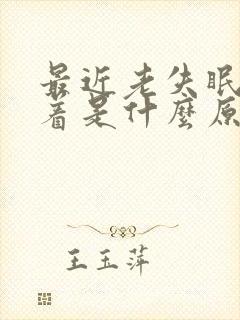 最近老失眠
着是什麼原
王玉萍